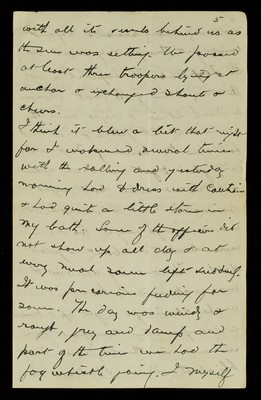 5
with all its events behind us as
the sun was setting. We passed
at least three troopers lying at
anchor & exchanged shouts &
cheers.
I think it blew a bit that night
for I wakened several times
with the rolling and yesterday
morning had to dress with caution
& had quite a little storm in
my bath. Some of the officers did
not show up all day & at
every meal some left hurriedly.
It was precarious feeding for
some. The day was windy &
rough, grey and damp and
part of the time we had the
fog whistle going. I myself